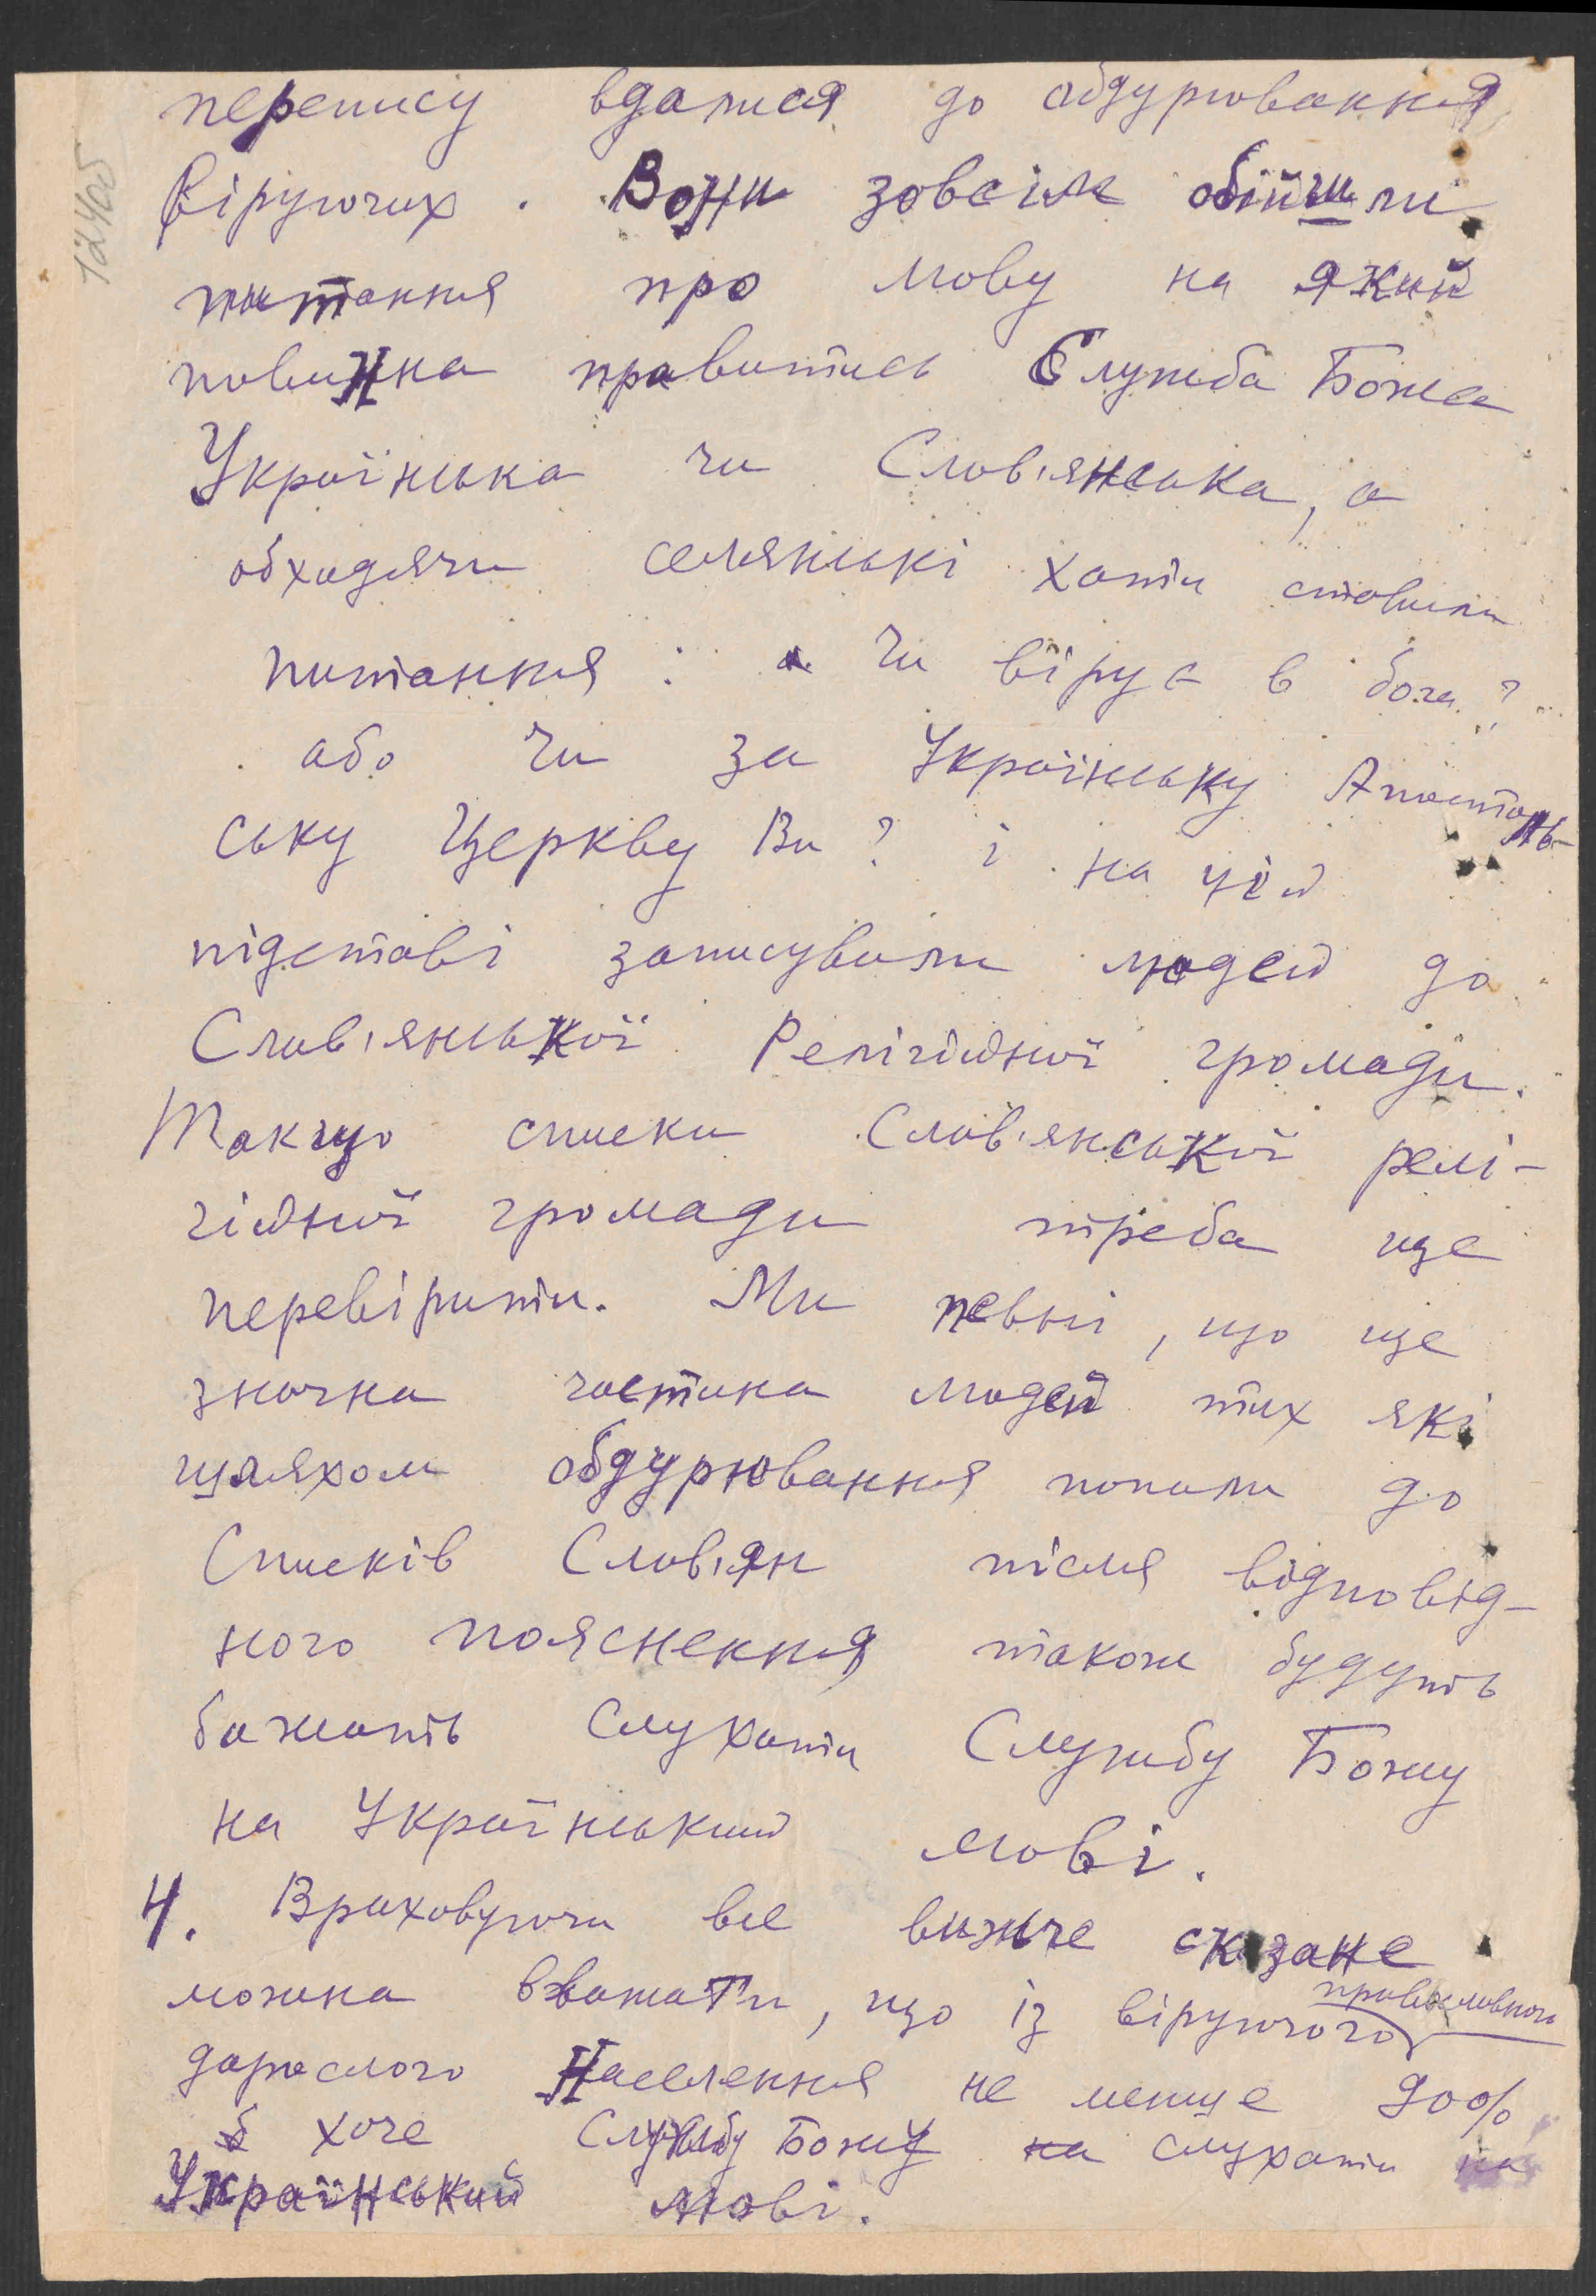 перепису вдалися до обдурювання
віруючих. Вони зовсім обійшли
питання про мову на який
повинна правитись Служба Божа
Українська чи Слов'янська, а
обходячи селянські хати ставили
питання: а чи вірує в бога?
або чи за Українську Апостоль-
ську Церкву Ви? і на цій
підставі записували людей до
Слов'янської Релігійної громади.
Такщо списки Слов'янської релі-
гійної громади треба ще
перевірити. Ми певні, що ще
значна частина людей тих які
шляхом обдурювання попали до
Списків Слов'ян після відповід-
ного пояснення також будуть
бажать слухати Службу Божу
на Український мові.
4. Враховуючи все вижче сказане
можна вважати, що із віруючого православного
дорослого Населення не менше 90%
хоче Службу Божу слухати на
Український мові.
12405